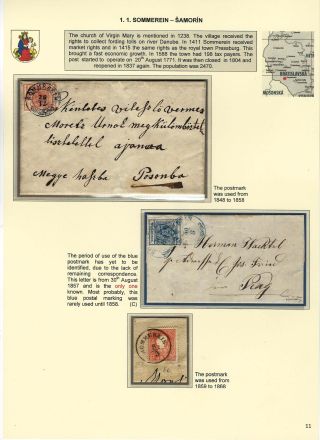 1. 1. SOMMEREIN – ŠAMORÍN
The church of Virgin Mary is mentioned in 1238. The village received the
rights to collect fording tolls on river Danube. In 1411 Sommerein received
market rights and in 1415 the same rights as the royal town Pressburg. This
brought a fast economic growth. In 1588 the town had 198 tax payers. The
post started to operate on 20th August 1771. It was then closed in 1804 and
reopened in 1837 again. The population was 2470.
BRATISLAVA
MOSONSKA
Tekintetes
Moretz Urnak
tisztelettel ajánva
Posonba
The postmark
was used from
1848 to 1858
The period of use of the blue
postmark has yet to be
identified, due to the lack of
remaining correspondence.
This letter is from 30th August
1857 and is the only one
known. Most probably, this
blue postal marking was
rarely used until 1858. (C)
Herman
Prag
SOMMEREIN
The postmark
was used from
1859 to 1868
11